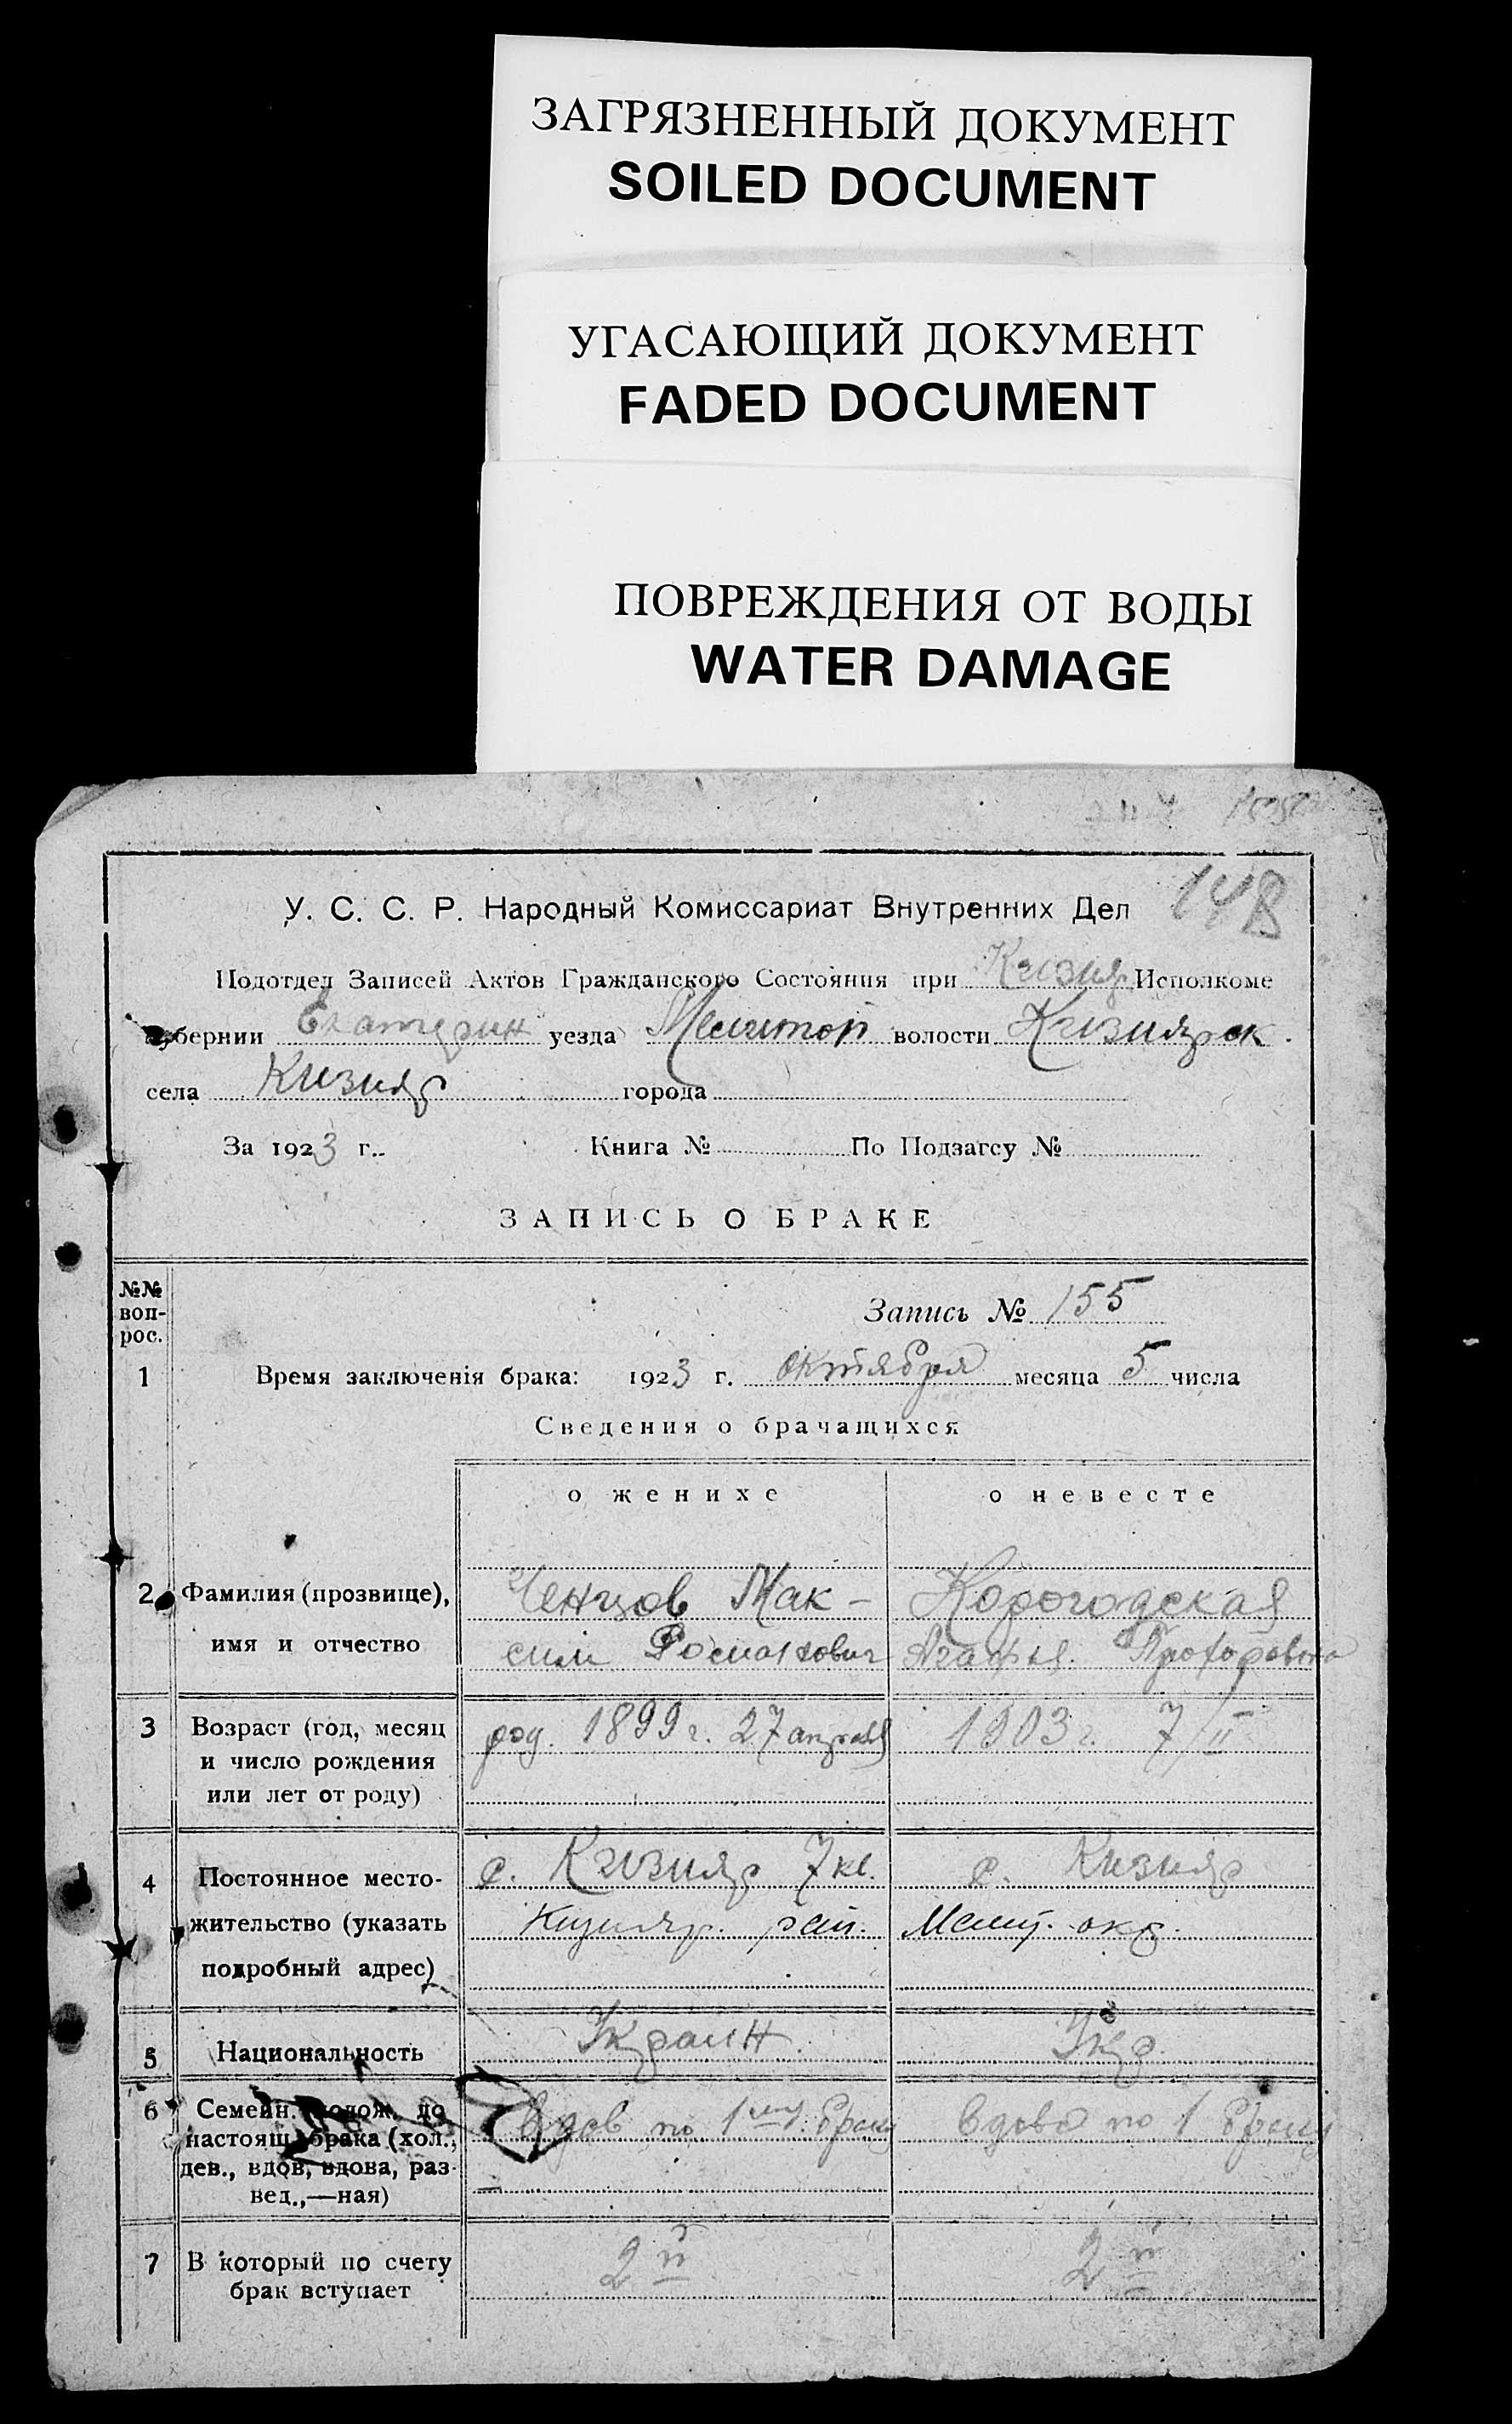 ЗАГРЯЗНЕННЫЙ ДОКУМЕНТ
SOILED DOCUMENT
УГАСАЮЩИЙ ДОКУМЕНТ
FADED DOCUMENT
ПОВРЕЖДЕНИЯ ОТ ВОДЫ
WATER DAMAGE
У. С. С. Р. Народный Комиссариат Внутренних Дел
Подотдел Записей Актов Гражданского Состояния при Кизияр. Исполкоме
губернии Екатерин уезда Мелитоп волости Кизиярск.
села Кизияр города
За 1923 г. Книга № По Подзагсу №
ЗАПИСЬ О БРАКЕ
№№ воп-рос.
Запись № 155
1 Время заключенія брака: 1923 г. октября месяца 5 числа
Сведения о брачащихся
о женихе о невесте
2 Фамилия (прозвище), Ченцов Мак- Корогодская
имя и отчество сим Агафья Прохоровна
3 Возраст (год, месяц род. 1899 г. 27 апреля 1903 г. 7/II
и число рождения
или лет от роду)
4 Постоянное место- с. Кизияр 7 кв. с. Кизияр
жительство (указать Кизияр. рай. Мелит. окр.
подробный адрес)
5 Национальность Украин. Укр.
6 Семейн. полож. до вдов по 1му браку вдова по 1 браку
настоящ. брака (хол.,
дев., вдов, вдова, раз-
вед.,—ная)
7 В который по счету 2й 2й
брак вступает